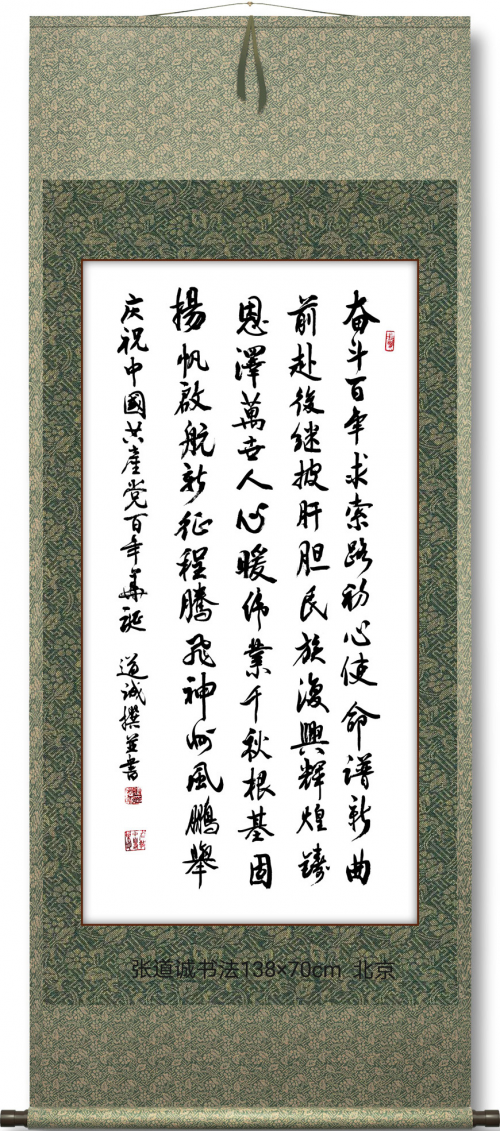 奋斗百年求索路初心使命谱新曲
前赴後继披肝胆民族復興辉煌鑄
恩澤萬世人心暖伟業千秋根基固
揚帆啟航新征程腾飛神州風鵬舉
庆祝中國共產党百年華诞 道诚撰並書
张道诚书法138×70cm 北京